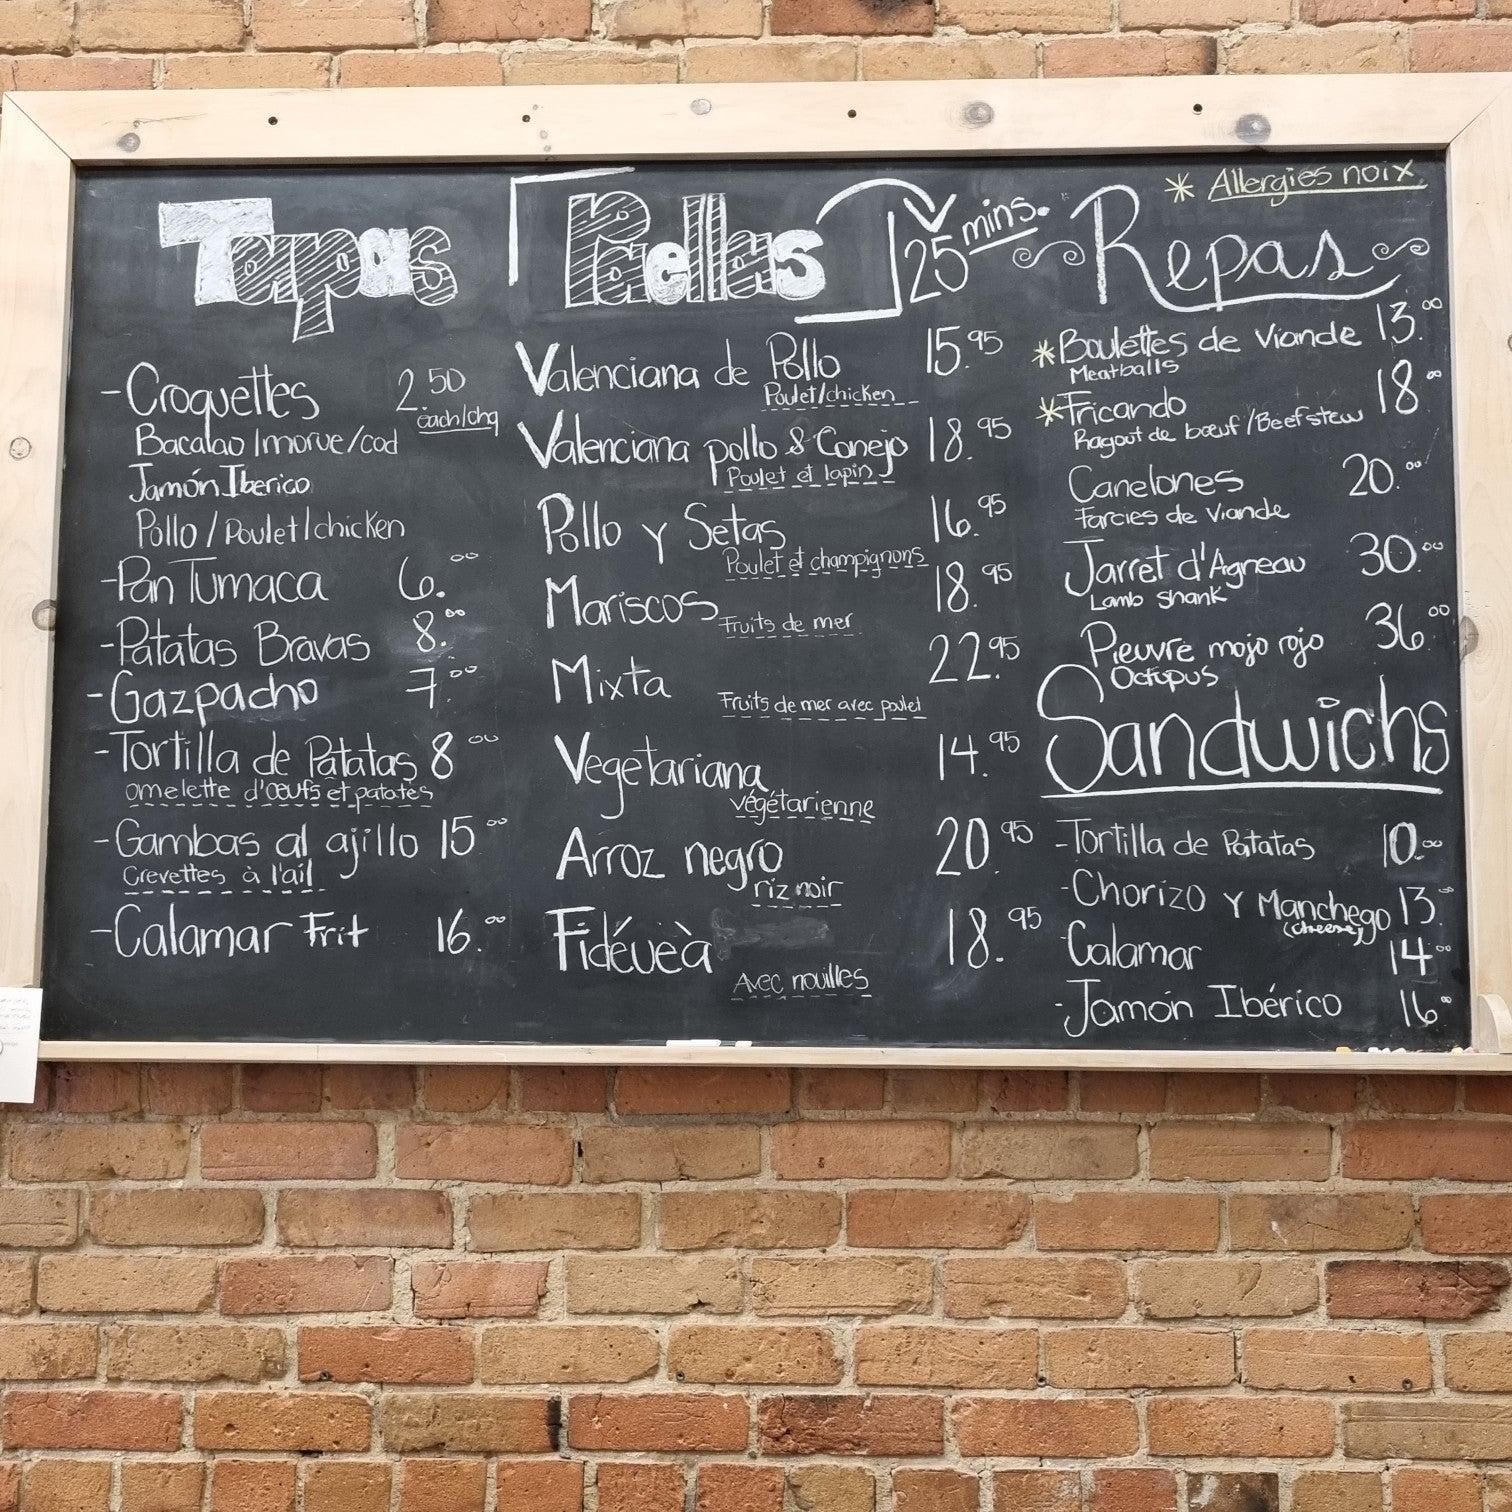 Tapas
- Croquettes 2.50
each/chq
Bacalao/morue/cod
Jamón Iberico
Pollo/Poulet/chicken
- Pan Tumaca 6.00
- Patatas Bravas 8.00
- Gazpacho 7.00
- Tortilla de Patatas 8 00
omelette d'œufs et patates
- Gambas al ajillo 15 00
Crevettes à l'ail
- Calamar Frit 16.00
Paellas 25 mins.
Valenciana de Pollo 15.95
Poulet/chicken
Valenciana pollo & Conejo 18.95
Poulet et lapin
Pollo y Setas 16.95
Poulet et champignons
Mariscos 18.95
Fruits de mer
Mixta 22.95
Fruits de mer avec poulet
Vegetariana 14.95
végétarienne
Arroz negro 20.95
riz noir
Fidéueà 18.95
Avec nouilles
* Allergies noix
Repas
*Boulettes de Viande 13.00
Meatballs
*Fricando 18.00
Ragout de bœuf/Beef stew
Canelones 20.00
Farcies de viande
Jarret d'Agneau 30.00
Lamb shank
Pieuvre mojo rojo 36.00
Octopus
Sandwichs
- Tortilla de Patatas 10.00
- Chorizo y Manchego 13.00
(cheese)
- Calamar 14.00
- Jamón Ibérico 16.00